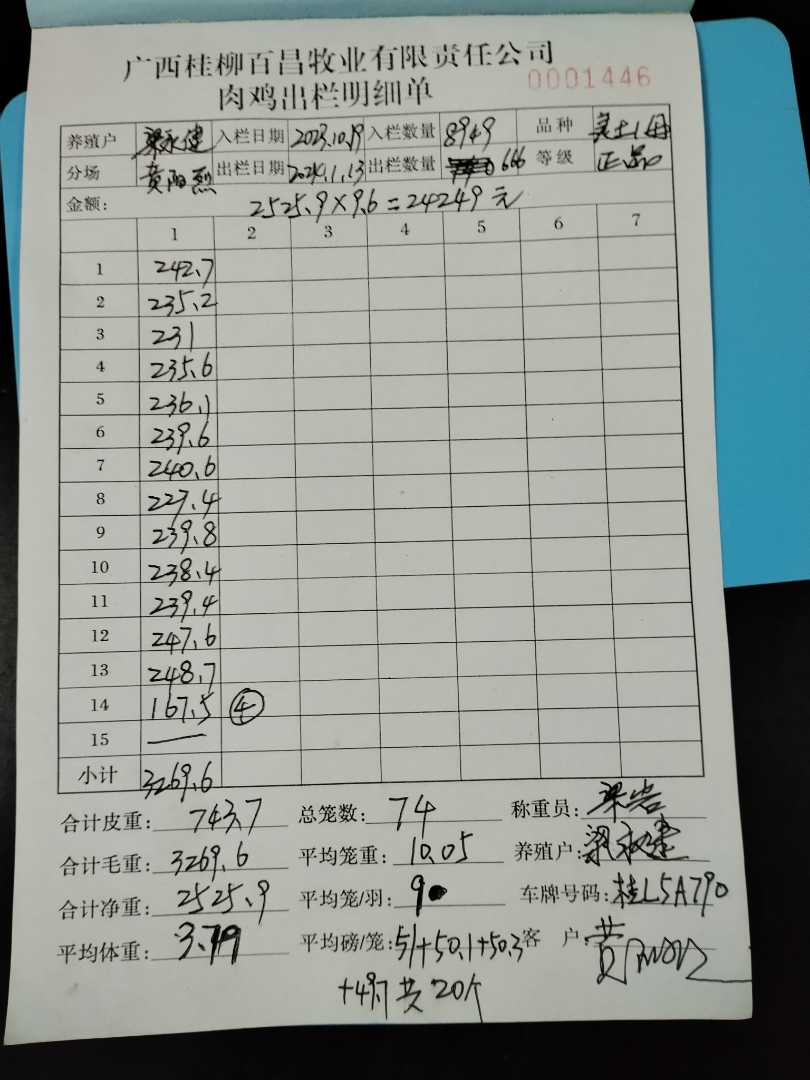 广西桂柳百昌牧业有限责任公司
肉鸡出栏明细单 0001446
养殖户 梁永健 入栏日期 2023.10.19 入栏数量 8949 品种
分场 黄阳烈 出栏日期 2024.1.13 出栏数量 666 等级 正品
金额: 2525.9×9.6=24249元
1 2 3 4 5 6 7
1 242.7
2 235.2
3 231
4 235.6
5 236.1
6 239.6
7 240.6
8 227.4
9 239.8
10 238.4
11 239.4
12 247.6
13 248.7
14 167.5 ④
15 —
小计 3269.6
合计皮重: 743.7 总笼数: 74 称重员: 梁岩
合计毛重: 3269.6 平均笼重: 10.05 养殖户: 梁永健
合计净重: 2525.9 平均笼/羽: 9 车牌号码: 桂L5A790
平均体重: 3.79 平均磅/笼: 51+50.1+50.3 客户 黄
+49.7 共20个